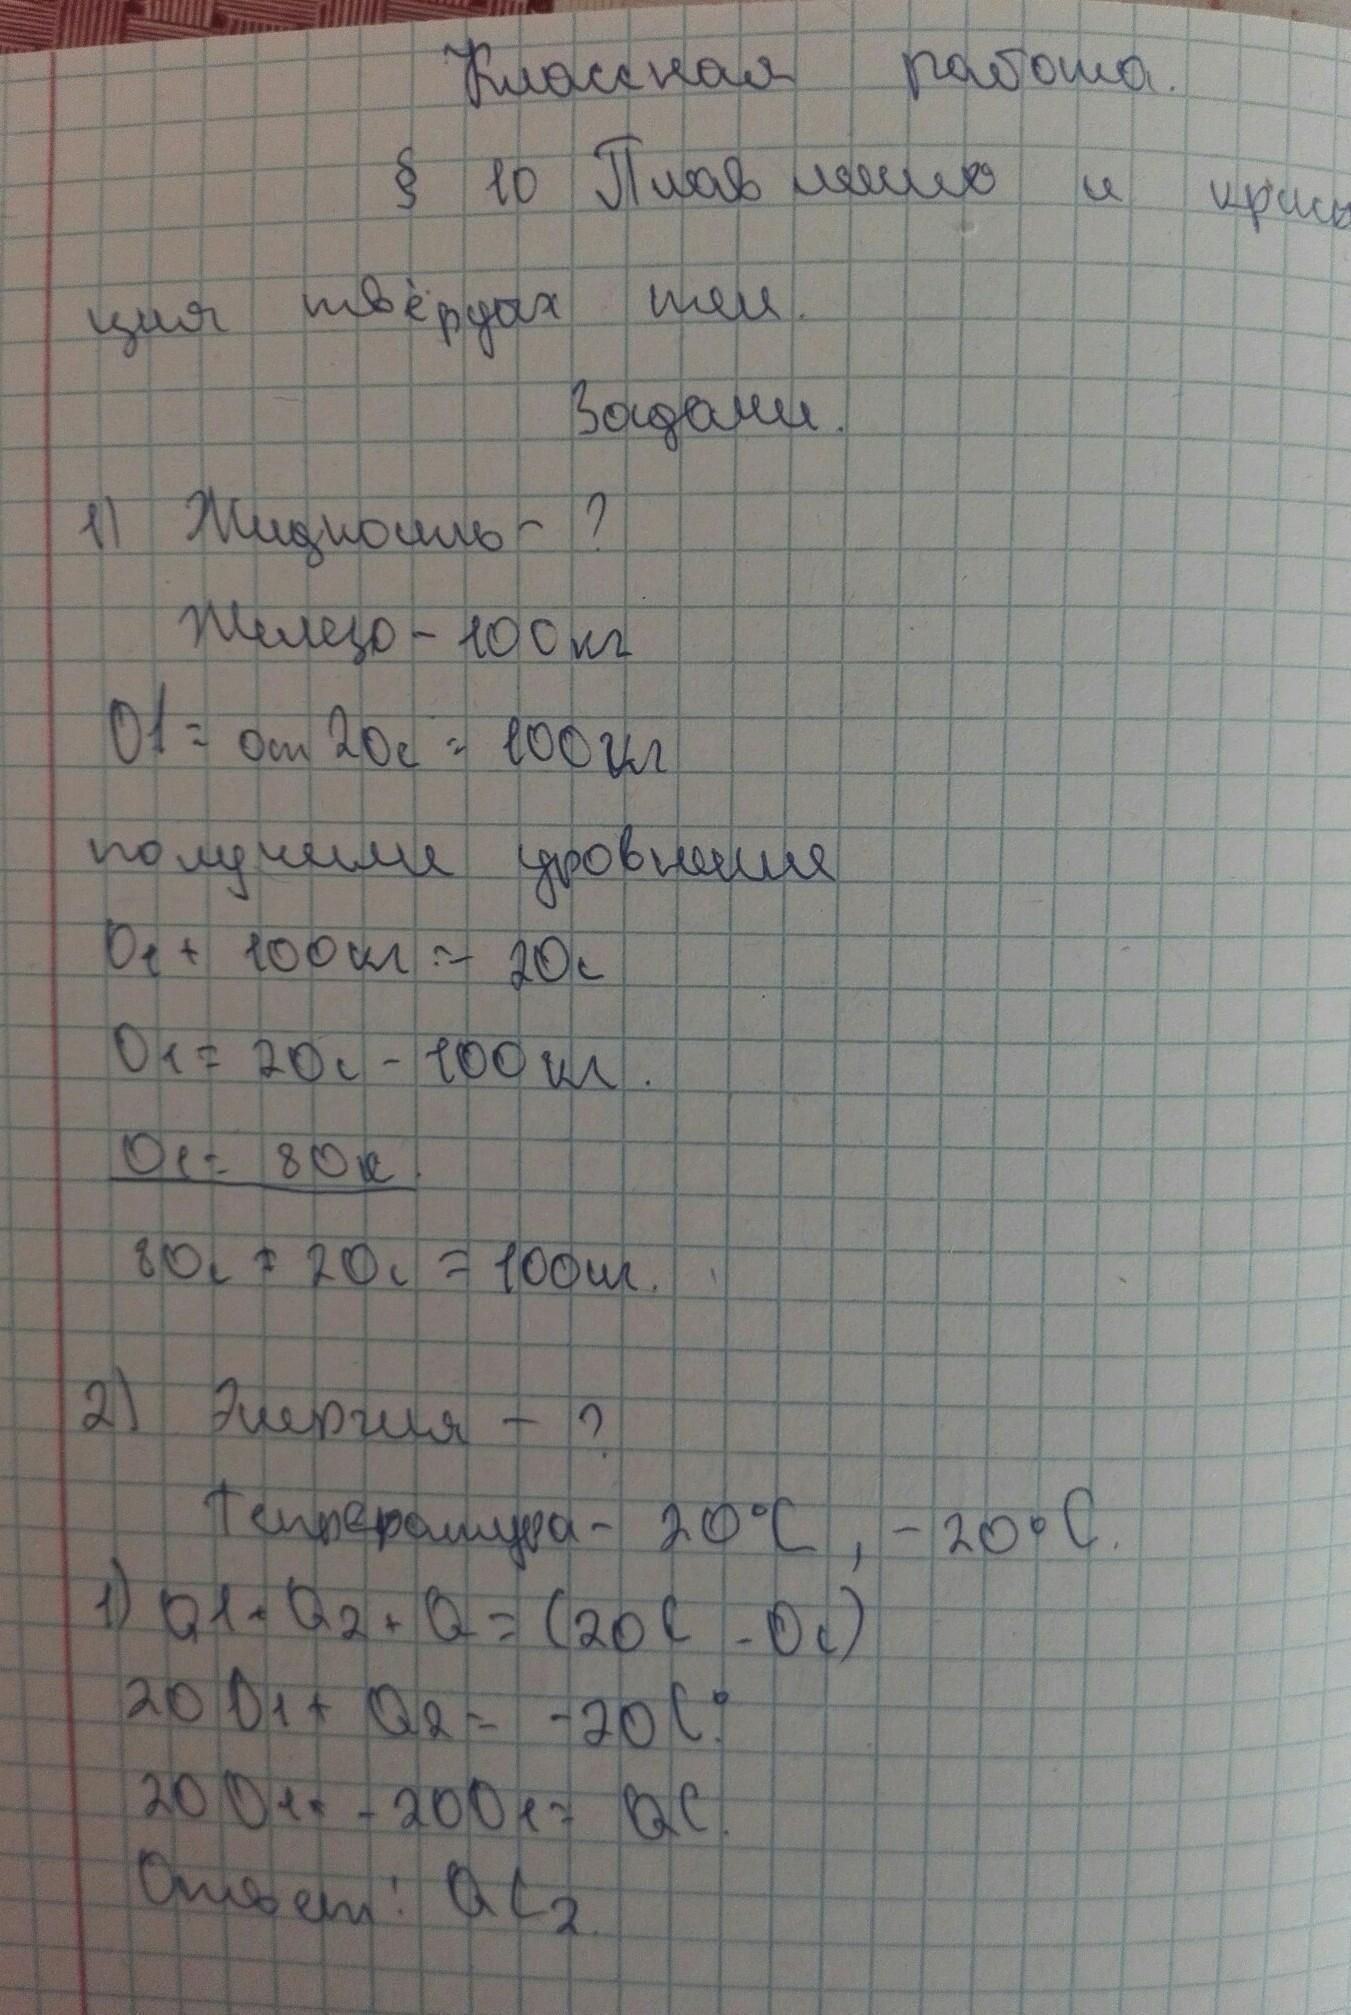 Классная работа.
§ 10 Плавление и крис
ция твёрдах тел.
Задачи.
1) Жидкость - ?
Железо - 100кг
О1 = от 20с = 100кг
получиме уровнения
О1 + 100кг = 20с
О1 = 20с - 100кг.
О1 = 80к.
80с + 20с = 100кг.
2) Энергия - ?
Температура - 20°С, -20°С.
1) Q1 + Q2 + Q = (20С - 0с)
20О1 + Q2 = -20С°.
20О1 + -20О1 = QС.
Ответ: QС2.